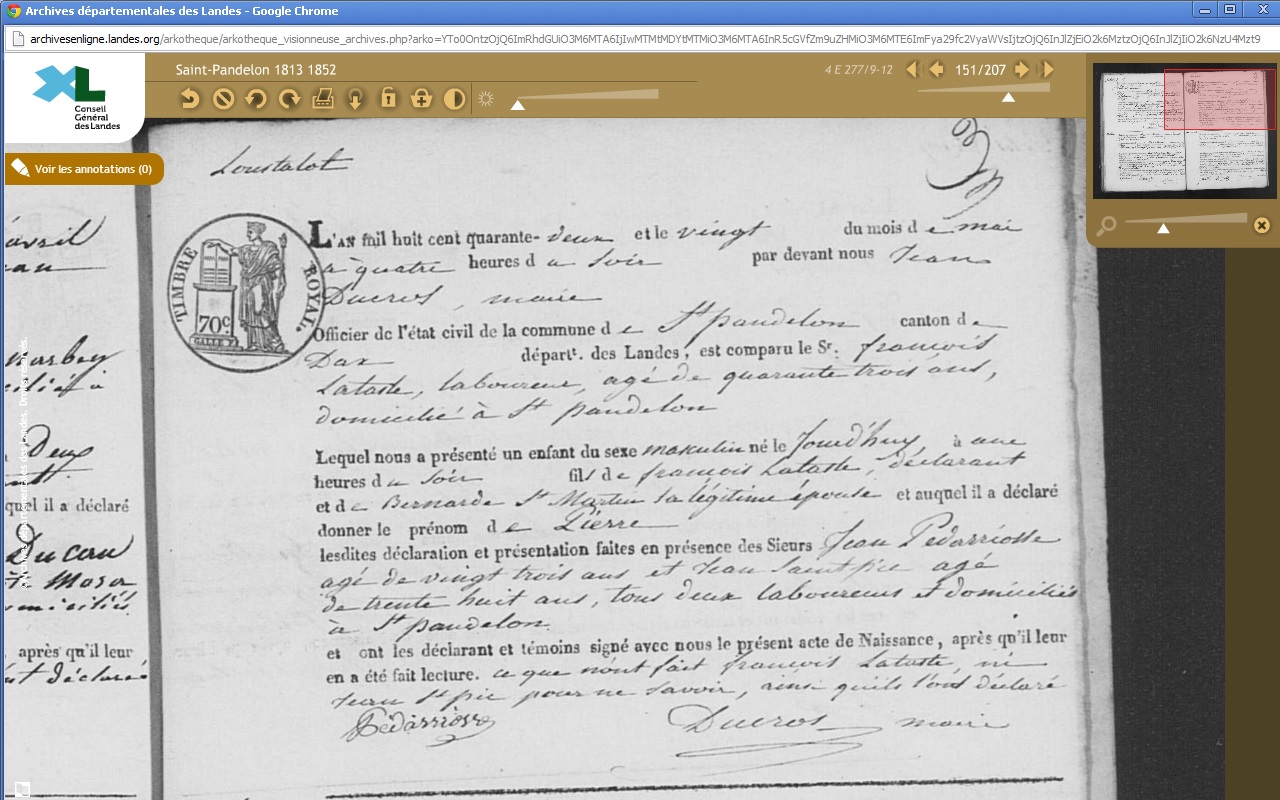 Archives départementales des Landes - Google Chrome
archivesenligne.landes.org/arkotheque/arkotheque_visionneuse_archives.php?arko=
Saint-Pandelon 1813 1852
4 E 277/9-12
151/207
Conseil
Général
des Landes
Voir les annotations (0)
Loustalot
TIMBRE ROYAL.
70c
L'AN mil huit cent quarante- deux et le vingt du mois de mai
à quatre heures du soir par devant nous Jean
Ducros, maire
Officier de l'état civil de la commune de St pandelon canton de
Dax départt. des Landes, est comparu le Sr. françois
Lataste, laboureur, agé de quarante trois ans,
domicilié à St pandelon
Lequel nous a présenté un enfant du sexe masculin né le Jourd'huy, à une
heures du soir fils de françois Lataste, déclarant
et de Bernarde St Martin sa légitime épouse et auquel il a déclaré
donner le prénom de Pierre
lesdites déclaration et présentation faites en présence des Sieurs Jean Pédarriosse
agé de vingt trois ans, et Jean Saint pic agé
de trente huit ans, tous deux laboureurs et domiciliés
à St pandelon.
et ont les déclarant et témoins signé avec nous le présent acte de Naissance, après qu'il leur
en a été fait lecture. ce que n'ont fait françois Lataste, ni
Jean St pic pour ne savoir, ainsi qu'ils l'ont déclaré
Pédarriosse Ducros maire
avril
Deux
quel il a déclaré
Ducau
après qu'il leur
déclaré